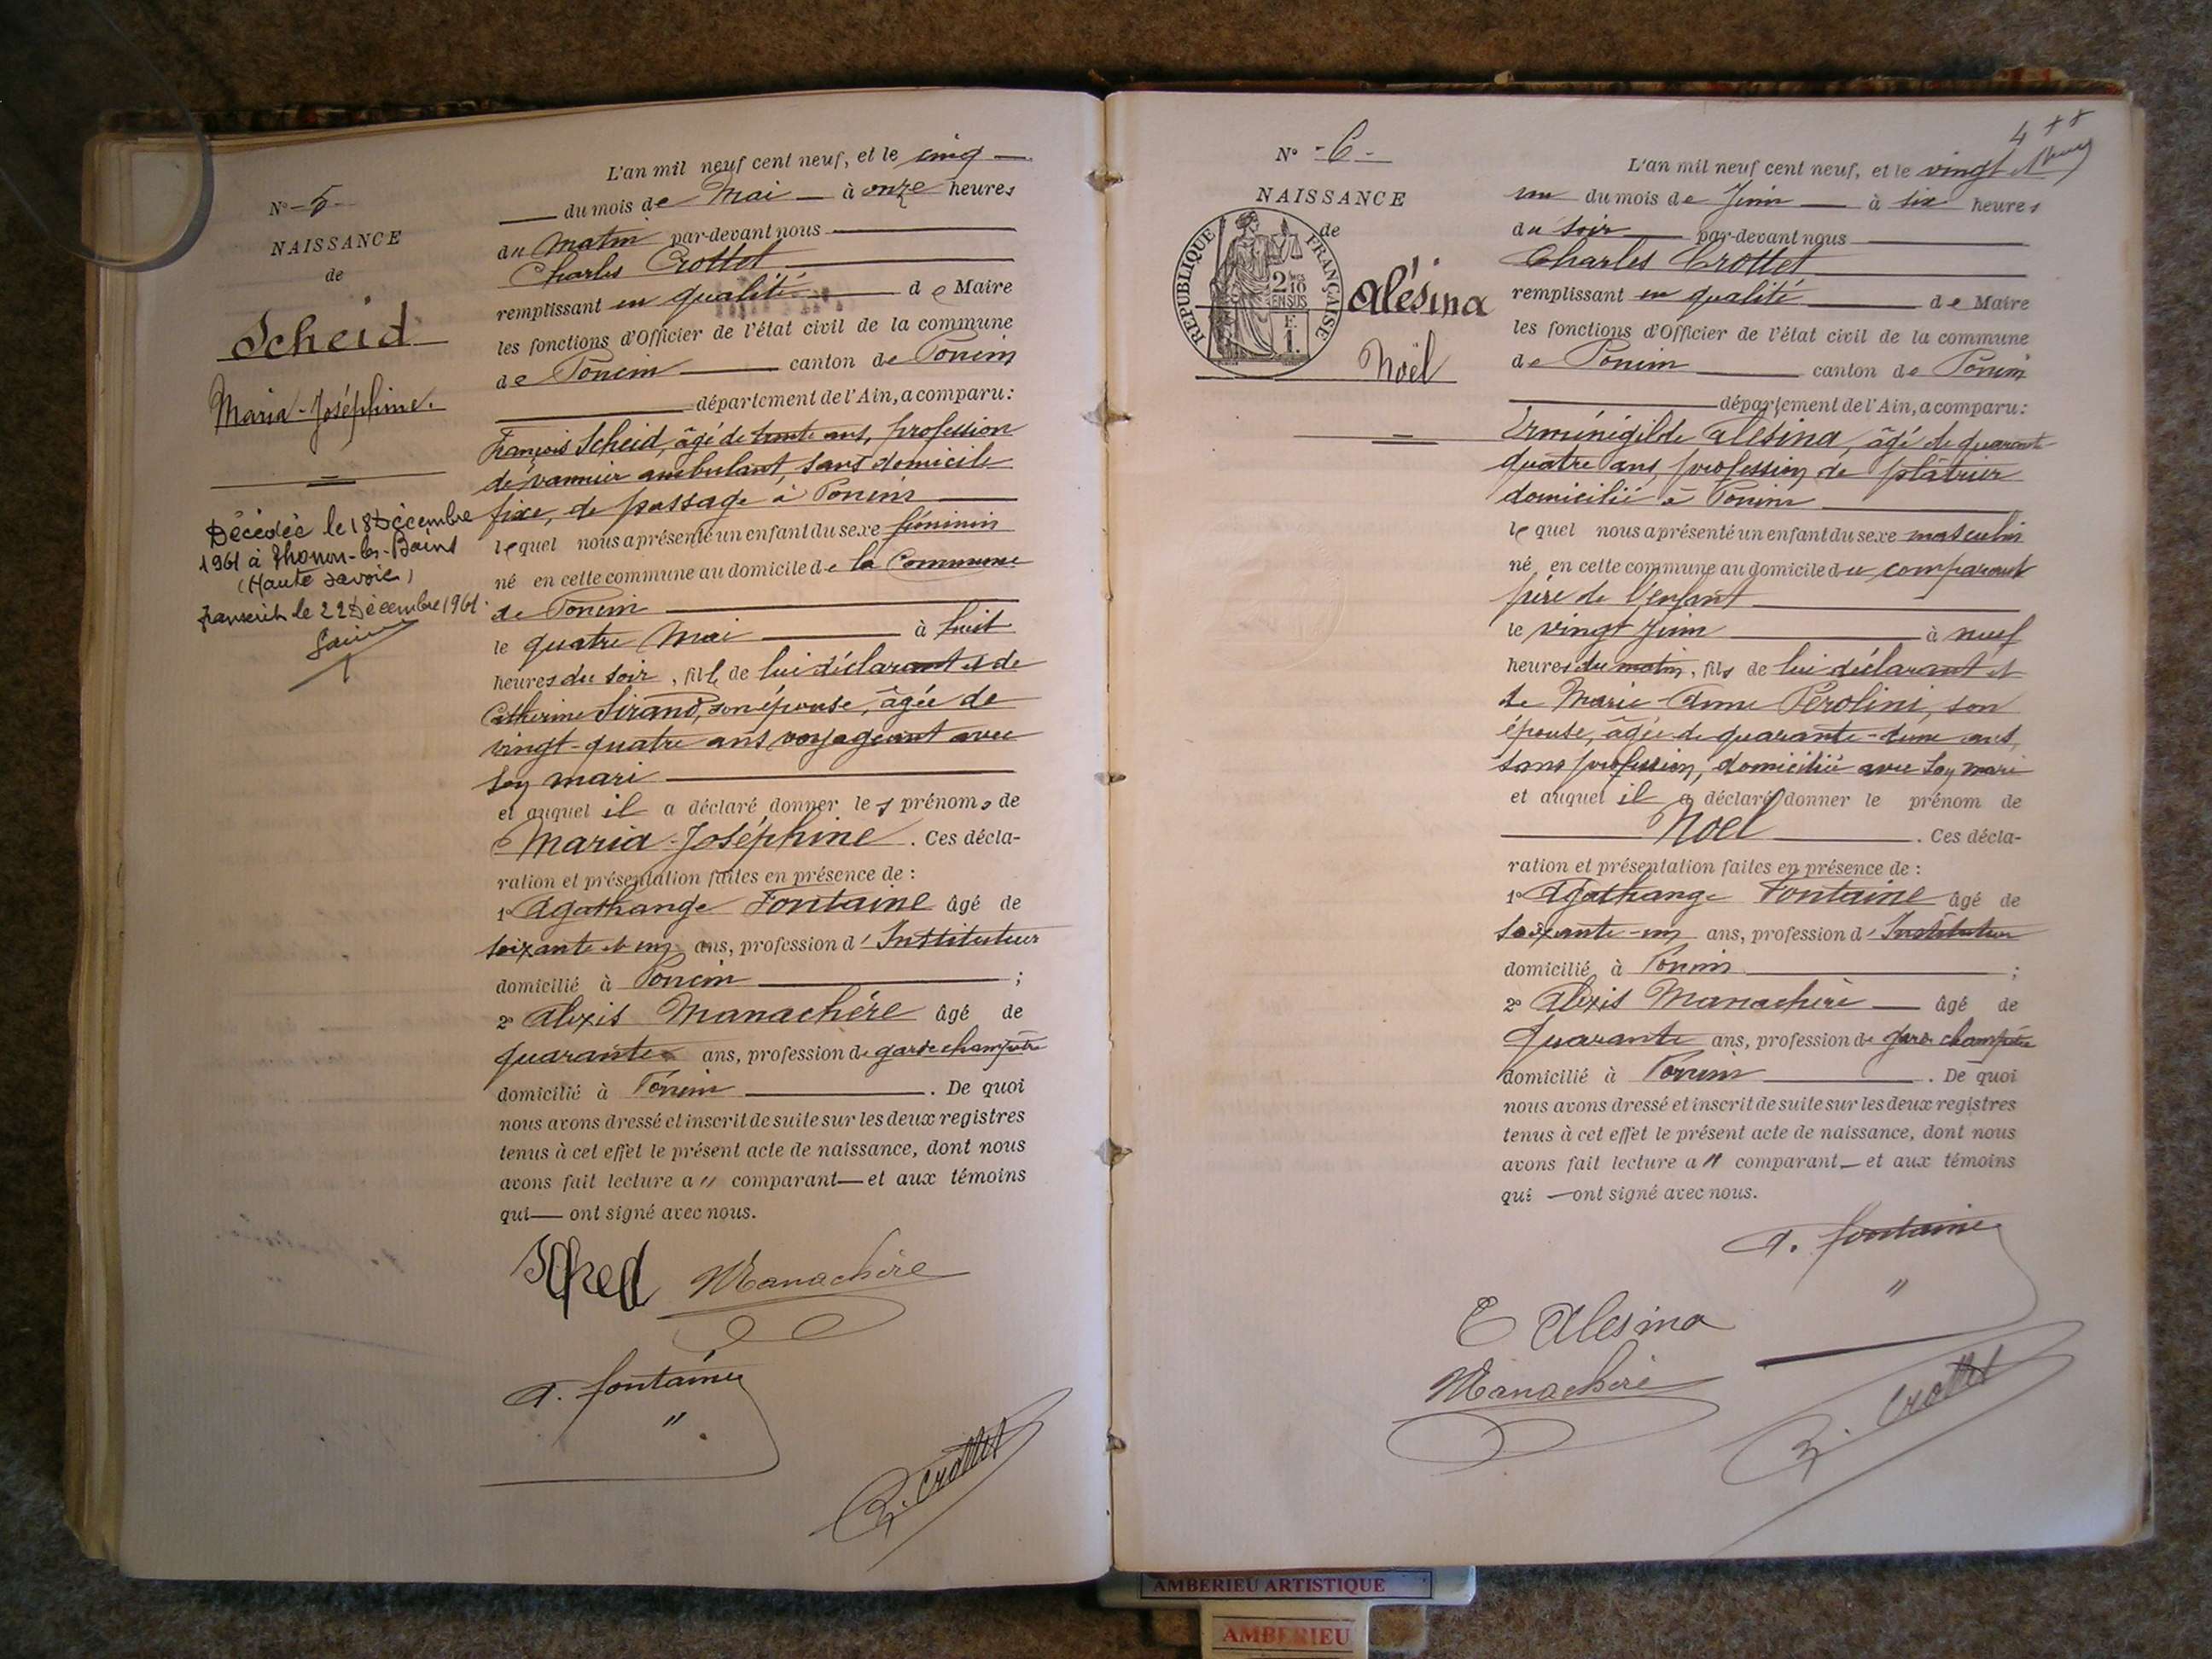 N° - 5 -
NAISSANCE
de
Scheid
Maria-Joséphine.
Décédée le 18 Décembre
1961 à Thonon-les-Bains
(Haute Savoie)
transcrit le 22 Décembre 1961.
L'an mil neuf cent neuf, et le cinq
du mois de Mai à onze heures
du Matin par-devant nous
Charles Crottet
remplissant en qualité de Maire
les fonctions d'Officier de l'état civil de la commune
de Poncin canton de Poncin
département de l'Ain, a comparu :
François Scheid, âgé de trente ans, profession
de vannier ambulant, sans domicile
fixe, de passage à Poncin
lequel nous a présenté un enfant du sexe féminin
né en cette commune au domicile de la Commune
de Poncin
le quatre Mai à huit
heures du soir, fille de lui déclarant et de
Catherine Sirand, son épouse, âgée de
vingt-quatre ans voyageant avec
son mari
et auquel il a déclaré donner les prénoms de
Maria-Joséphine. Ces décla-
ration et présentation faites en présence de :
1° Agathange Fontaine âgé de
soixante et un ans, profession d'Instituteur
domicilié à Poncin ;
2° Alexis Manachère âgé de
quarante ans, profession de garde champêtre
domicilié à Poncin. De quoi
nous avons dressé et inscrit de suite sur les deux registres
tenus à cet effet le présent acte de naissance, dont nous
avons fait lecture a " comparant — et aux témoins
qui — ont signé avec nous.
Sched Manachère
A. fontaine
"
C. Crottet
4
N° - 6 -
NAISSANCE
de
REPUBLIQUE FRANÇAISE
2/10
EN SUS
F.
1.
Alésina
Noël
L'an mil neuf cent neuf, et le vingt
un du mois de Juin à six heures
du soir par-devant nous
Charles Crottet
remplissant en qualité de Maire
les fonctions d'Officier de l'état civil de la commune
de Poncin canton de Poncin
département de l'Ain, a comparu :
Erménégilde Alésina, âgé de quarante-
quatre ans, profession de plâtrier
domicilié à Poncin
lequel nous a présenté un enfant du sexe masculin
né en cette commune au domicile du comparant
père de l'enfant
le vingt Juin à neuf
heures du matin, fils de lui déclarant et
de Marie-Anne Pérolini, son
épouse, âgée de quarante- ans,
sans profession, domiciliée avec son mari
et auquel il a déclaré donner le prénom de
Noël. Ces décla-
ration et présentation faites en présence de :
1° Agathange Fontaine âgé de
soixante-un ans, profession d'Instituteur
domicilié à Poncin ;
2° Alexis Manachère — âgé de
Quarante ans, profession de garde champêtre
domicilié à Poncin. De quoi
nous avons dressé et inscrit de suite sur les deux registres
tenus à cet effet le présent acte de naissance, dont nous
avons fait lecture a " comparant — et aux témoins
qui — ont signé avec nous.
A. fontaine
"
E Alesina
Manachère
C. Crottet
AMBERIEU ARTISTIQUE
AMBERIEU